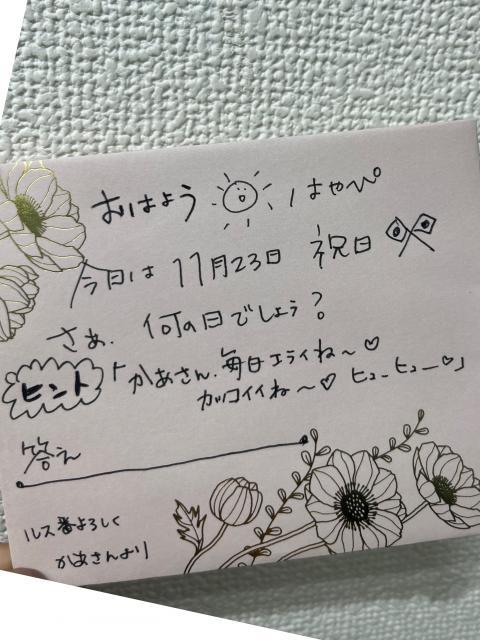 おはよう はやっ
今日は 11月23日 祝日
さぁ、何の日でしょう？
ヒント「かあさん、毎日エライね～♡
カッコイイね～♡ ヒューヒュー♡」
答え
ルス番よろしく
かあさんより